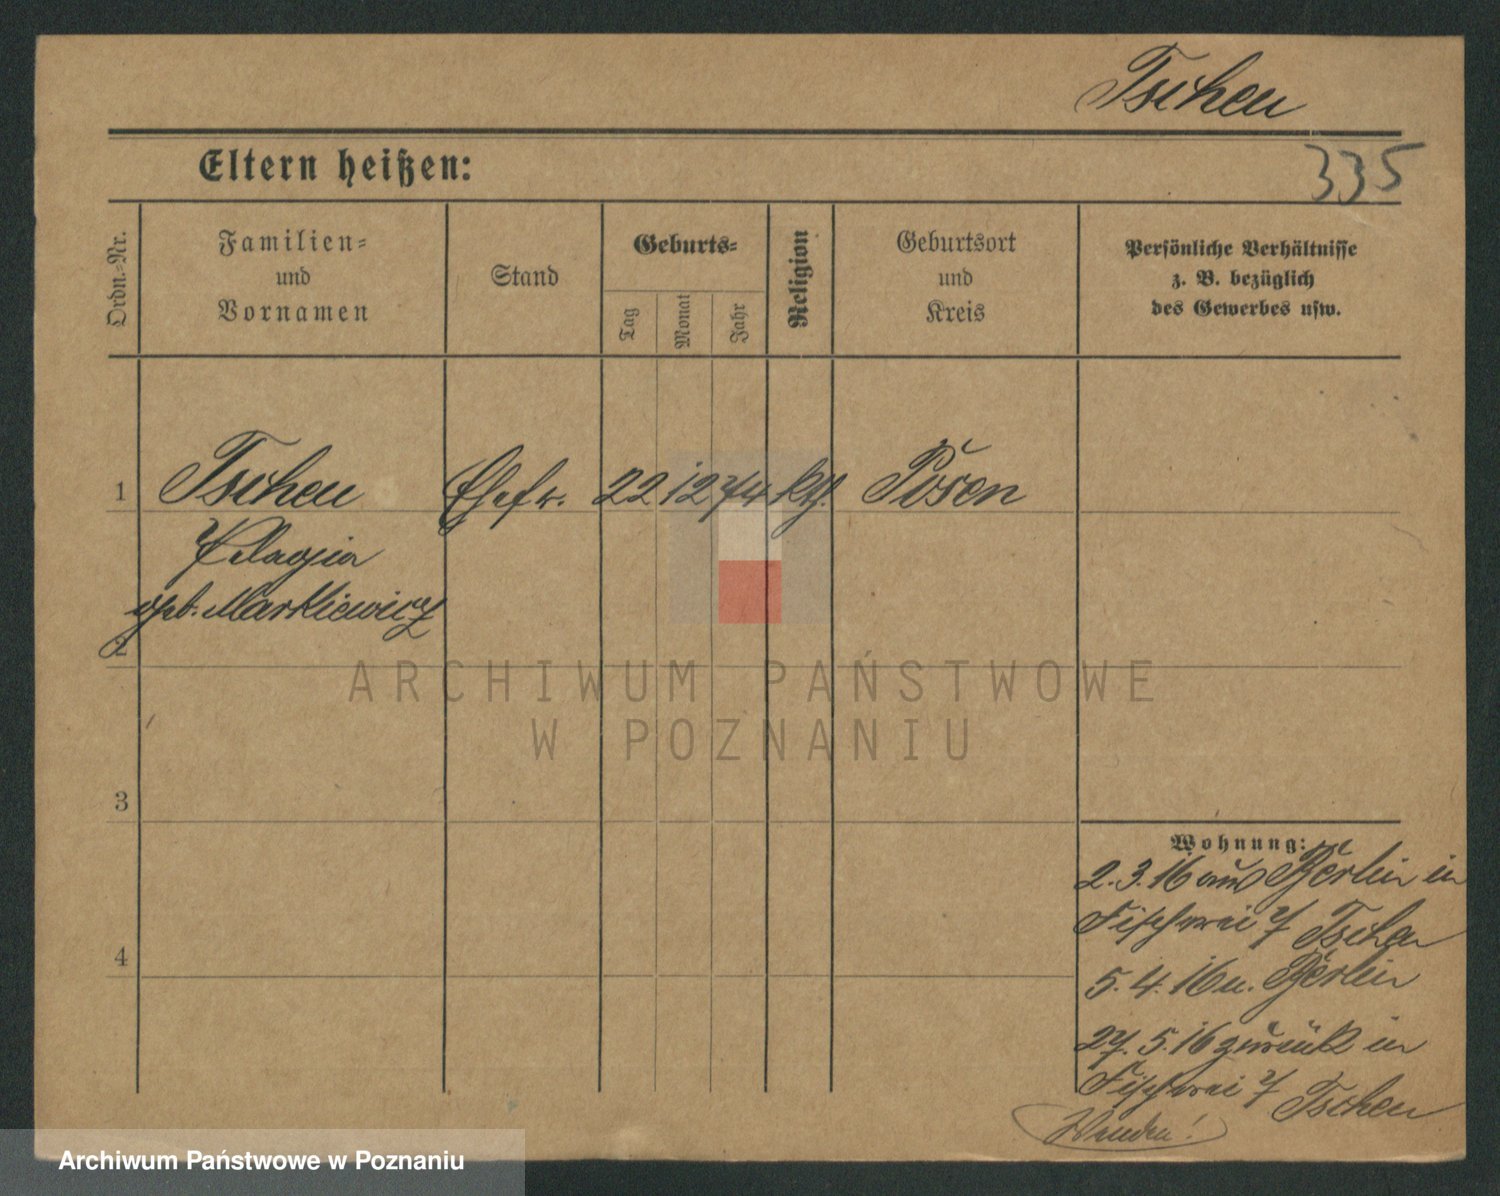 Tschen
Eltern heißen:
335
Ordn.-Nr.
Familien-
und
Vornamen
Stand
Geburts-
Tag
Monat
Jahr
Religion
Geburtsort
und
Kreis
Persönliche Verhältnisse
z. B. bezüglich
des Gewerbes usw.
1 Tschen Ehefr. 22 12 74 kth. Posen
Pelagia
geb. Markiewicz
2
ARCHIWUM PAŃSTWOWE
W POZNANIU
3
Wohnung:
2. 3. 16 aus Berlin in
Fischerei 7 Tschen
4
5. 4. 16 n. Berlin
27. 5. 16 zurück in
Fischerei 7 Tschen
Wenden!
Archiwum Państwowe w Poznaniu